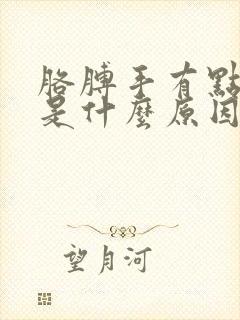 胳膊手有點
是什麼原因
望月河